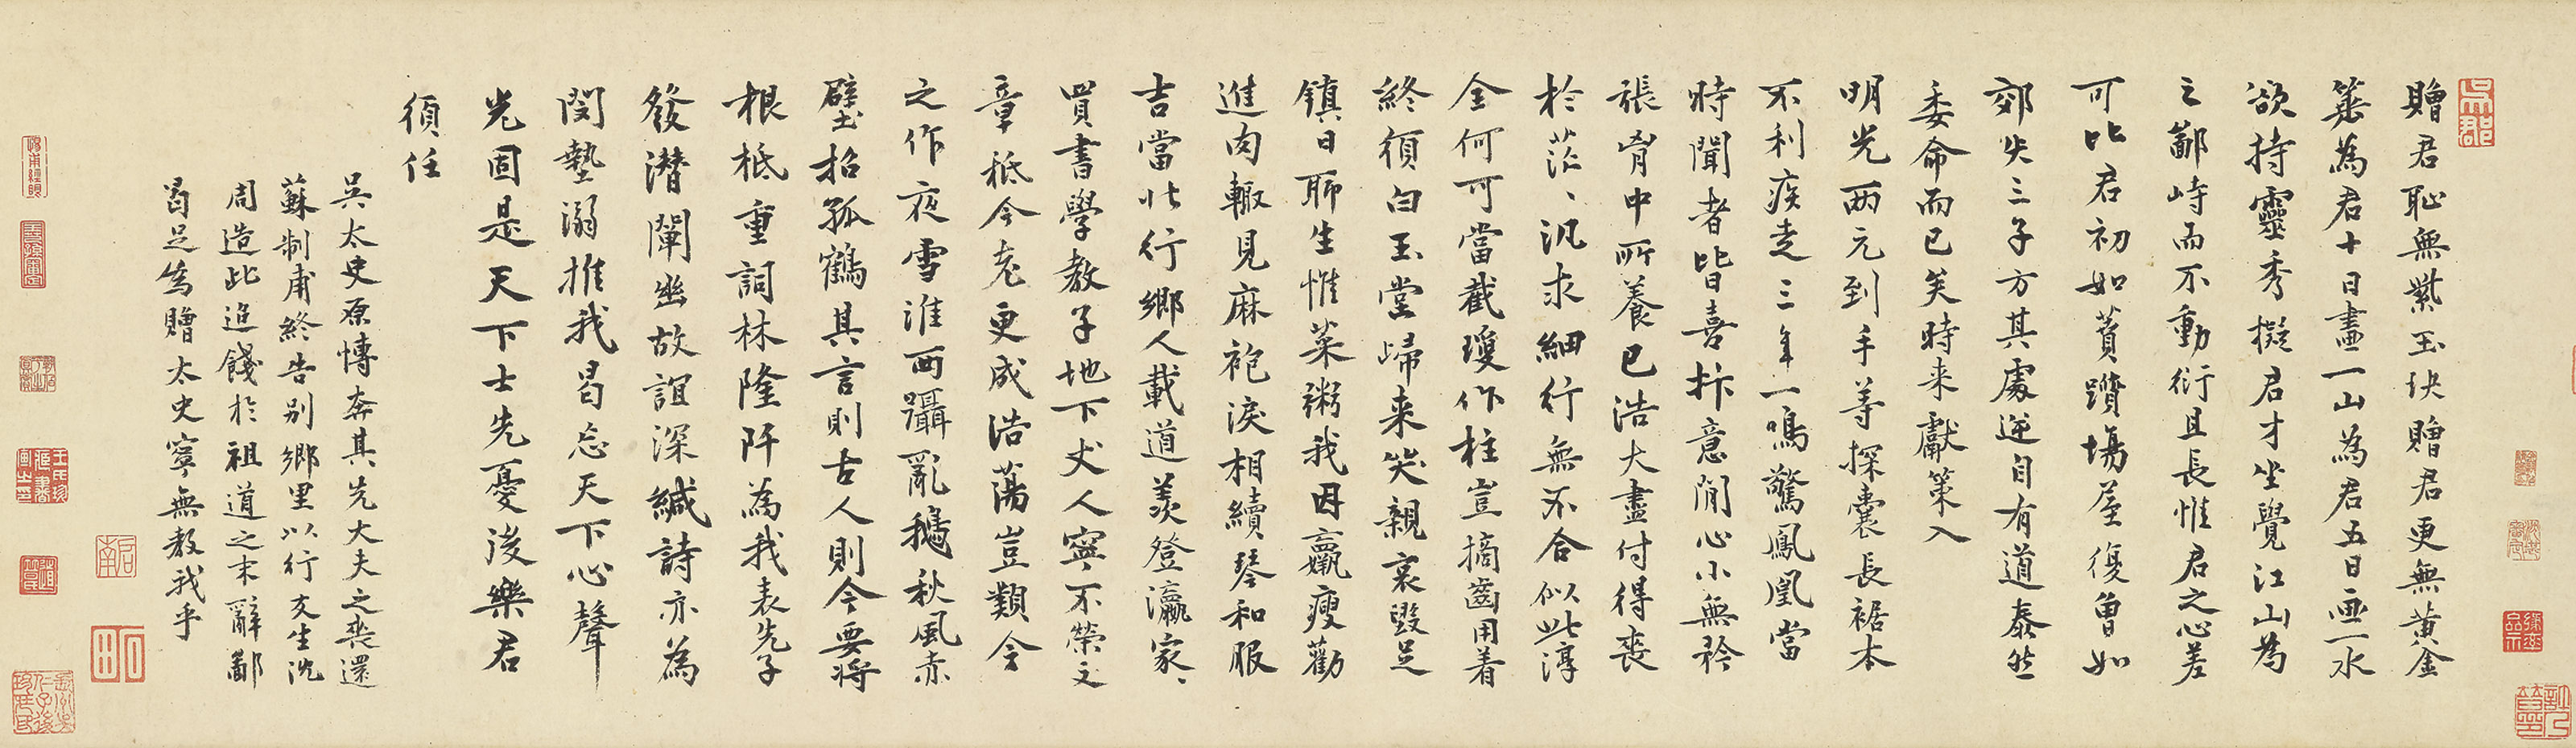 贈君恥無紫玉玦贈君更無黃金
為君十日畫一山為君五日畫一水
欲持靈秀擬君才坐覺江山為
之鄙峙而不動衍且長惟君之心差
可比君初如蕡躓場屋復曾如
郊失三子方其處逆自有道泰然
委命而已矣時来獻策入
明光兩元到手等探囊長裾本
不利疾走三年一鳴驚鳳凰當
時聞者皆喜抃意閒心小無矜
張胷中所養已浩大盡付得喪
於茫、汎求細行無不合似此淳
全何可當截瓊作柱豈摘齒用着
終須白玉堂歸来哭親哀毀足
鎮日聊生惟菜粥我因羸瘦勸
進肉輙見麻袍淚相續琴和服
吉當北行鄉人載道羨登瀛家、
買書學教子地下丈人寧不榮文
章秪今老更成浩蕩豈類今
之作夜雪淮西躡亂鵝秋風赤
壁招孤鶴其言則古人則今要將
根柢重詞林隆阡為我表先子
發潛闡幽故誼深緘詩亦為
閔墊溺推我曷忘天下心聲
光固是天下士先憂後樂君
須任
吳太史原愽奔其先大夫之喪還
蘇制甫終告别鄉里以行友生沈
周造此追餞於祖道之末辭鄙
曷足為贈太史寧無教我乎